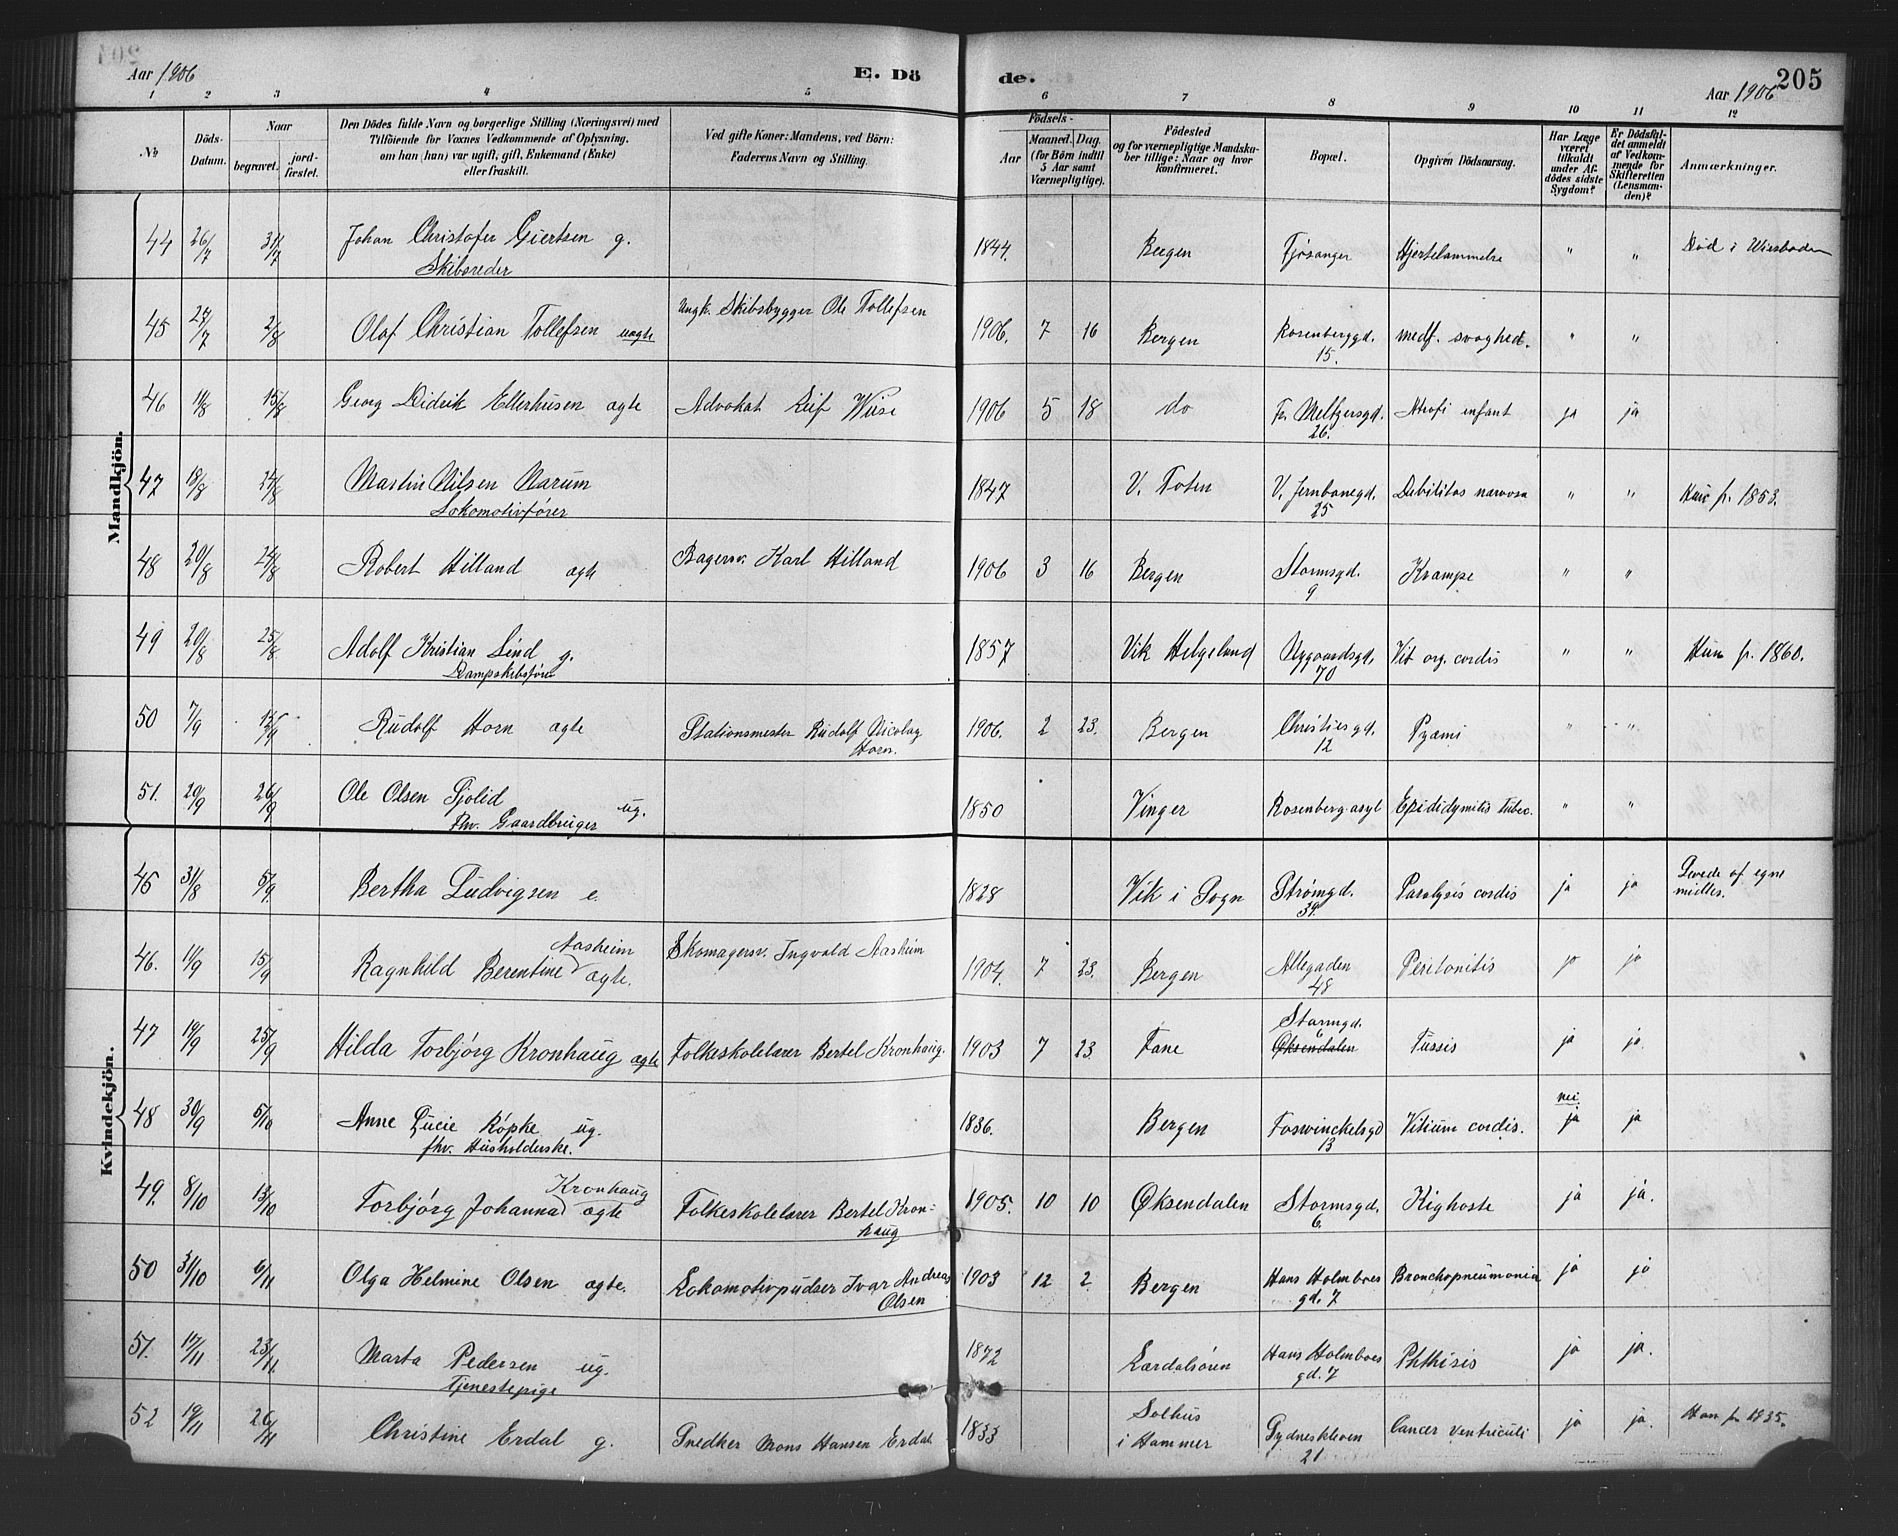 Aar 1906 E. Dö de. Aar 1906 205
1 2 3 4 5 6 7 8 9 10 11 12
No
Döds-Datum.
Naar
begravet. jord-fæstet.
Den Dödes fulde Navn og borgerlige Stilling (Næringsvei) med
Tilföiende for Voxnes Vedkommende af Oplysning.
om han (hun) var ugift, gift, Enkemand (Enke)
eller fraskilt.
Ved gifte Koner: Mandens, ved Börn:
Faderens Navn og Stilling.
Födsels-
Aar Maaned. Dag.
(for Börn indtil
5 Aar samt
Værnepligtige).
Födested
og for værnepligtige Mandska-
ber tillige: Naar og hvor
konfirmeret.
Bopæl.
Opgiven Dödsaarsag.
Har Læge
været
tilkaldt
under Af-
dödes sidste
Sygdom?
Er Dödsfal-
det anmeldt
af Vedkom-
mende for
Skifteretten
(Lensman-
den)?
Anmærkninger.
Mandkjön.
44 26/7 31/7 Johan Christofer Giertsen g. 1844. Bergen Fjøsanger Hjertelammelse " " Död i Wiesbaden
Skibsreder
45 27/7 2/8 Olaf Christian Tollefsen uægte Ungk. Skibsbygger Ole Tollefsen 1906. 7 16 Bergen Rosenberggd. medf. svaghed. " "
15.
46 11/8 15/8 Georg Didrik Ellerhusen ægte Advokat Leif Wüse 1906 5 18 do Fr. Meltzersgd. Atrofi infant ja ja
26.
47 18/8 24/8 Martin Nilsen Narum 1847 V. Toten V. Jernbanegd. Debilitas nervosa " " 1853.
Lokomotivfører 25
48 20/8 24/8 Robert Hilland ægte Bagersv. Karl Hilland 1906 3 16 Bergen Stormsgd. Krampe " "
9
49 20/8 25/8 Adolf Kristian Lind g. 1857 Vik Helgeland Nygaardsgd. Vit org. cordis " " 1860.
Dampskibsfører 70
50 7/9 12/9 Rudolf Horn ægte Stationsmester Rudolf Nicolay 1906. 2 23. Bergen Christiesgd. Pyæmi " "
Horn. 12
51. 20/9 26/9 Ole Olsen Sjolid ug. 1850 Vinger Rosenberg asyl Epididymitis tuberc. " "
fhv. Gaardbruger
Kvindekjön.
45 31/8 5/9 Bertha Ludvigsen e. 1828 Vik i Sogn Strømgd. Paralysis cordis ja ja Levede af egne
39. midler.
46. 11/9 15/9 Ragnhild Berentine Aasheim ægte. Skomagersv. Ingvald Aasheim 1904. 7 23. Bergen Allegaden Peritonitis ja ja
48
47 19/9 25/9 Hilda Torbjørg Kronhaug ægte Folkeskolelærer Bertel Kronhaug. 1903 7 23 Fane Stormgd. Tussis ja ja.
6 Øksendalen
48 30/9 5/10 Anne Lucie Röpke ug. 1836. Bergen Foswinckelsgd Vitium cordis. nei. ja ja
fhv. Husholderske. 13
49. 8/10 13/10 Torbjørg Johanna Kronhaug ægte Folkeskolelærer Bertel Kron- 1905. 10 10 Øksendalen Stormsgd. Kighoste ja ja.
haug 6.
50 31/10 6/11 Olga Helmine Olsen ægte. Lokomotivpudser Ivar Andreas 1903 12 2. Bergen Hans Holmboes Bronchopneumonia ja ja
Olsen gd. 7
51. 17/11 23/11 Marta Pedersen ug. 1872 Lærdalsøren Hans Holmboes Phthisis ja ja.
Tjenestepige gd. 7
52 19/11 26/11 Christine Erdal g. Snedker Mons Hansen Erdal 1833 Salhus Sydneskleven Cancer ventriculi ja ja. Han f. 1835.
i Hammer 21